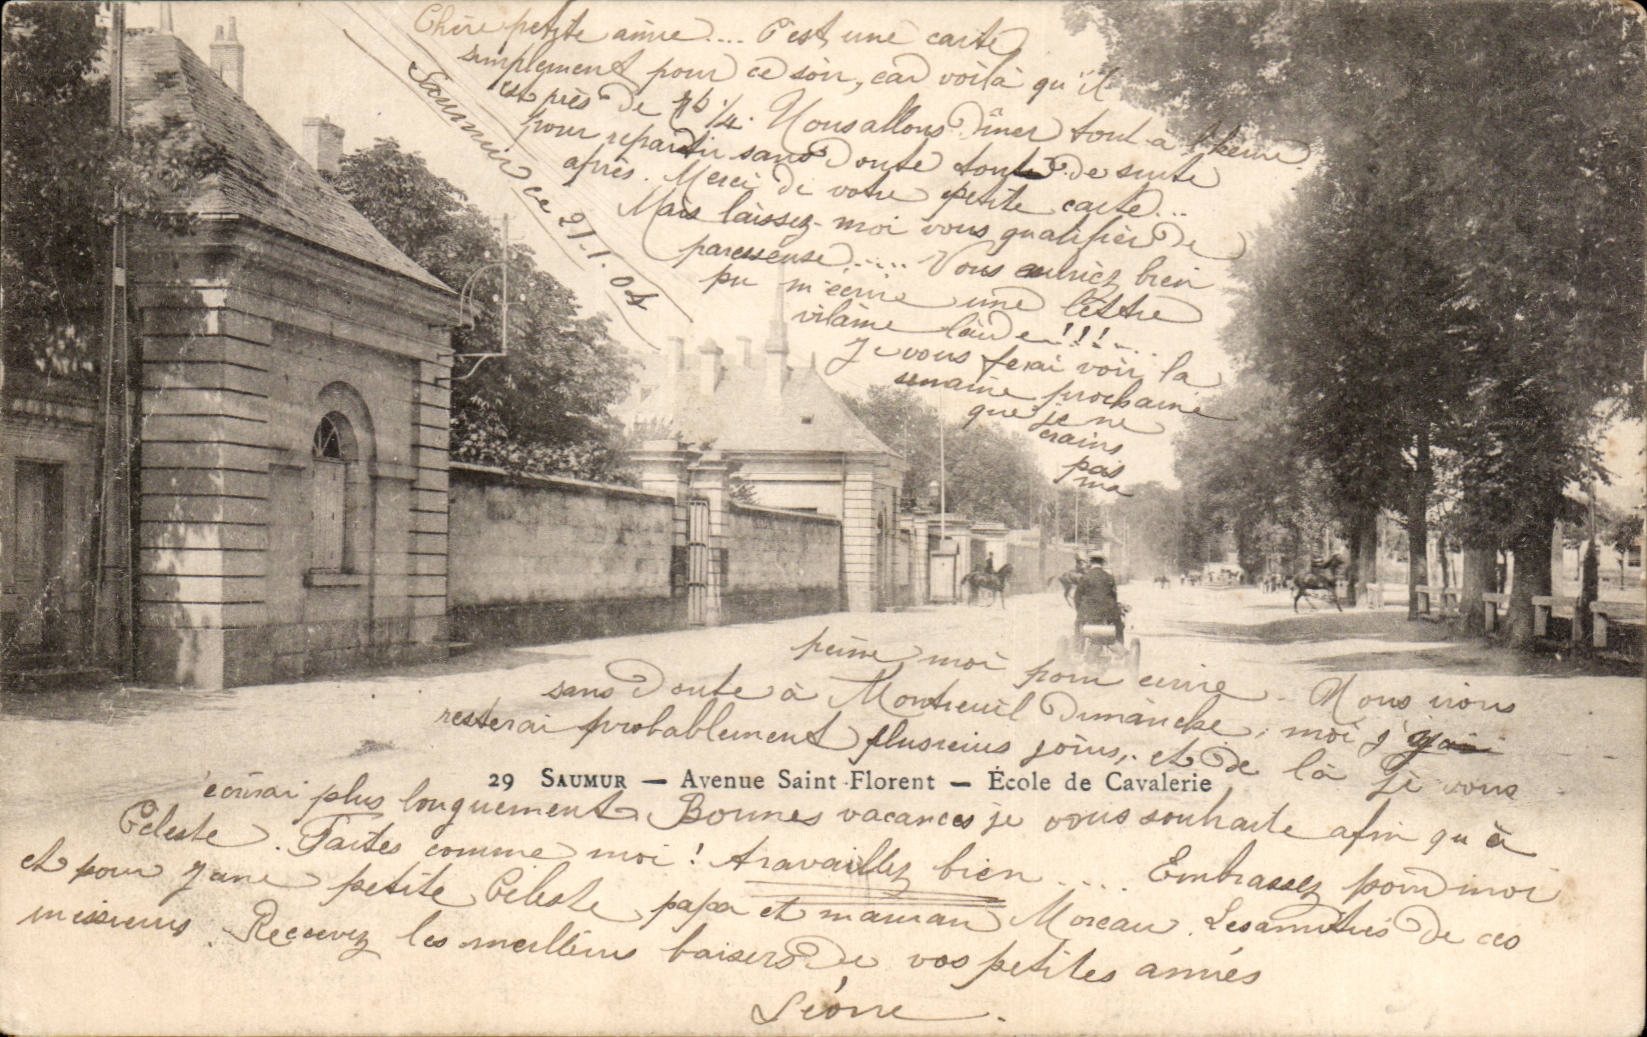 Chère petite amie.... C'est une carte
simplement pour ce soir, car voilà qu'il
est près de 7h 1/4. Nous allons dîner tout à l'heure
pour repartir sans doute toute de suite
après. Merci de votre petite carte...
Mais laissez-moi vous qualifier de
paresseuse..... Vous auriez bien
pu m'écrire une lettre
vilaine laide!!!...
Je vous ferai voir la
semaine prochaine
que je ne
crains
pas
ma
Saumur ce 21.1.04
peine moi pour écrire. Nous irons
sans doute à Montreuil Dimanche, moi j'y
resterai probablement plusieurs jours, et de là je vous
29 SAUMUR — Avenue Saint-Florent — École de Cavalerie
écrirai plus longuement. Bonnes vacances je vous souhaite afin qu'à
Céleste. Faites comme moi! travaillez bien.... Embrassez pour moi
et pour Jane petite Céleste, papa et maman Moreau. Les amitiés de ces
messieurs. Recevez les meilleurs baisers de vos petites amies
Léone.